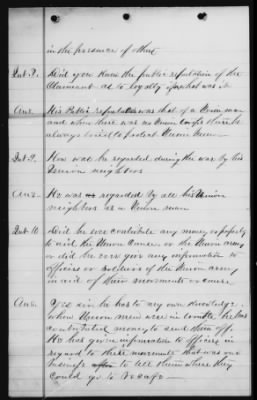 in the presence of others
Int 8. Did you know the public reputation of the
Claimant as to loyalty if so what was it
Ans. His Public reputation was that of a Union man
and when there was no Union troops there he
always tried to protect Union men
Int 9. How was he regarded during the war by his
Union neighbors
Ans. He was regarded by all his Union
neighbors as a Union man
Int 10. Did he ever contribute any money or property
to aid the Union Cause or the Union army
or did he ever give any information to
officers or soldiers of the Union army
in aid of their movements or cause
Ans. Yes sir he has to my own knowledge
when Union men were in trouble he has
contributed money to send them off.
He has given information to officers in
regard to their movements that was
benefit to tell them where they
could go to